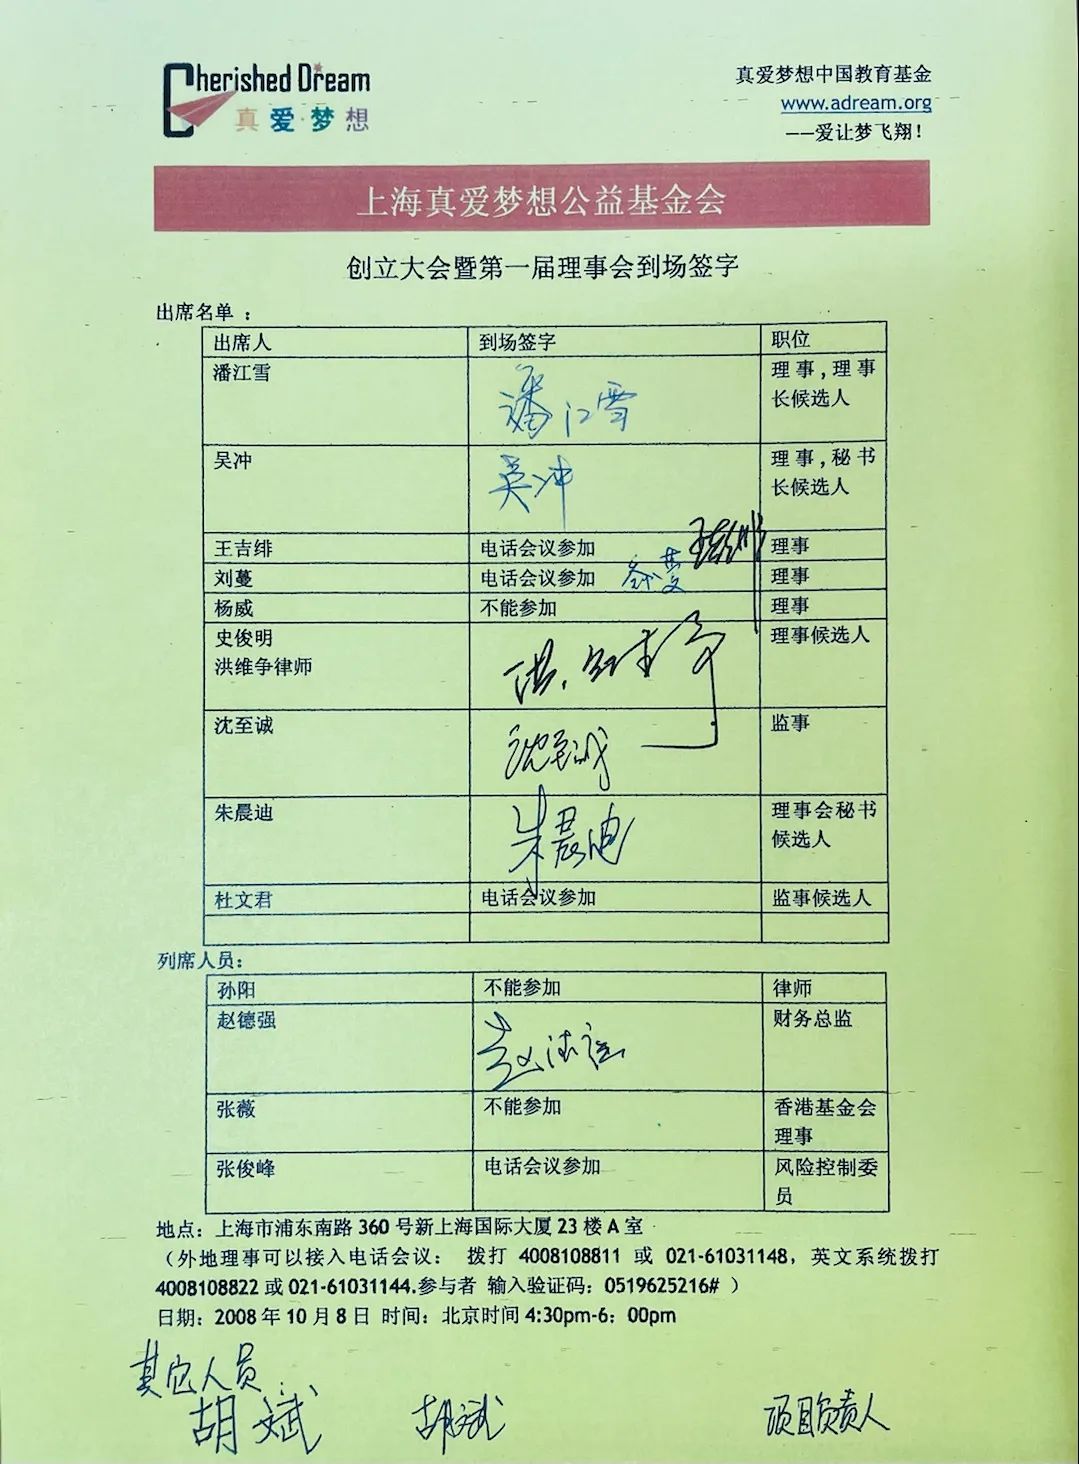 Cherished Dream
真爱·梦想
真爱梦想中国教育基金
www.adream.org
——爱让梦飞翔！
上海真爱梦想公益基金会
创立大会暨第一届理事会到场签字
出席名单 ：
出席人 到场签字 职位
潘江雪 潘江雪 理事,理事
长候选人
吴冲 吴冲 理事,秘书
长候选人
王吉绯 电话会议参加 理事
刘蔓 电话会议参加 刘蔓 理事
杨威 不能参加 理事
史俊明 理事候选人
洪维争律师
沈至诚 沈至诚 监事
朱晨迪 朱晨迪 理事会秘书
候选人
杜文君 电话会议参加 监事候选人
列席人员：
孙阳 不能参加 律师
赵德强 赵德强 财务总监
张薇 不能参加 香港基金会
理事
张俊峰 电话会议参加 风险控制委
员
地点：上海市浦东南路 360 号新上海国际大厦 23 楼 A 室
（外地理事可以接入电话会议： 拨打 4008108811 或 021-61031148，英文系统拨打
4008108822 或 021-61031144.参与者 输入验证码：0519625216# ）
日期：2008 年 10 月 8 日 时间：北京时间 4:30pm-6：00pm
其它人员：
胡斌 胡斌 项目负责人